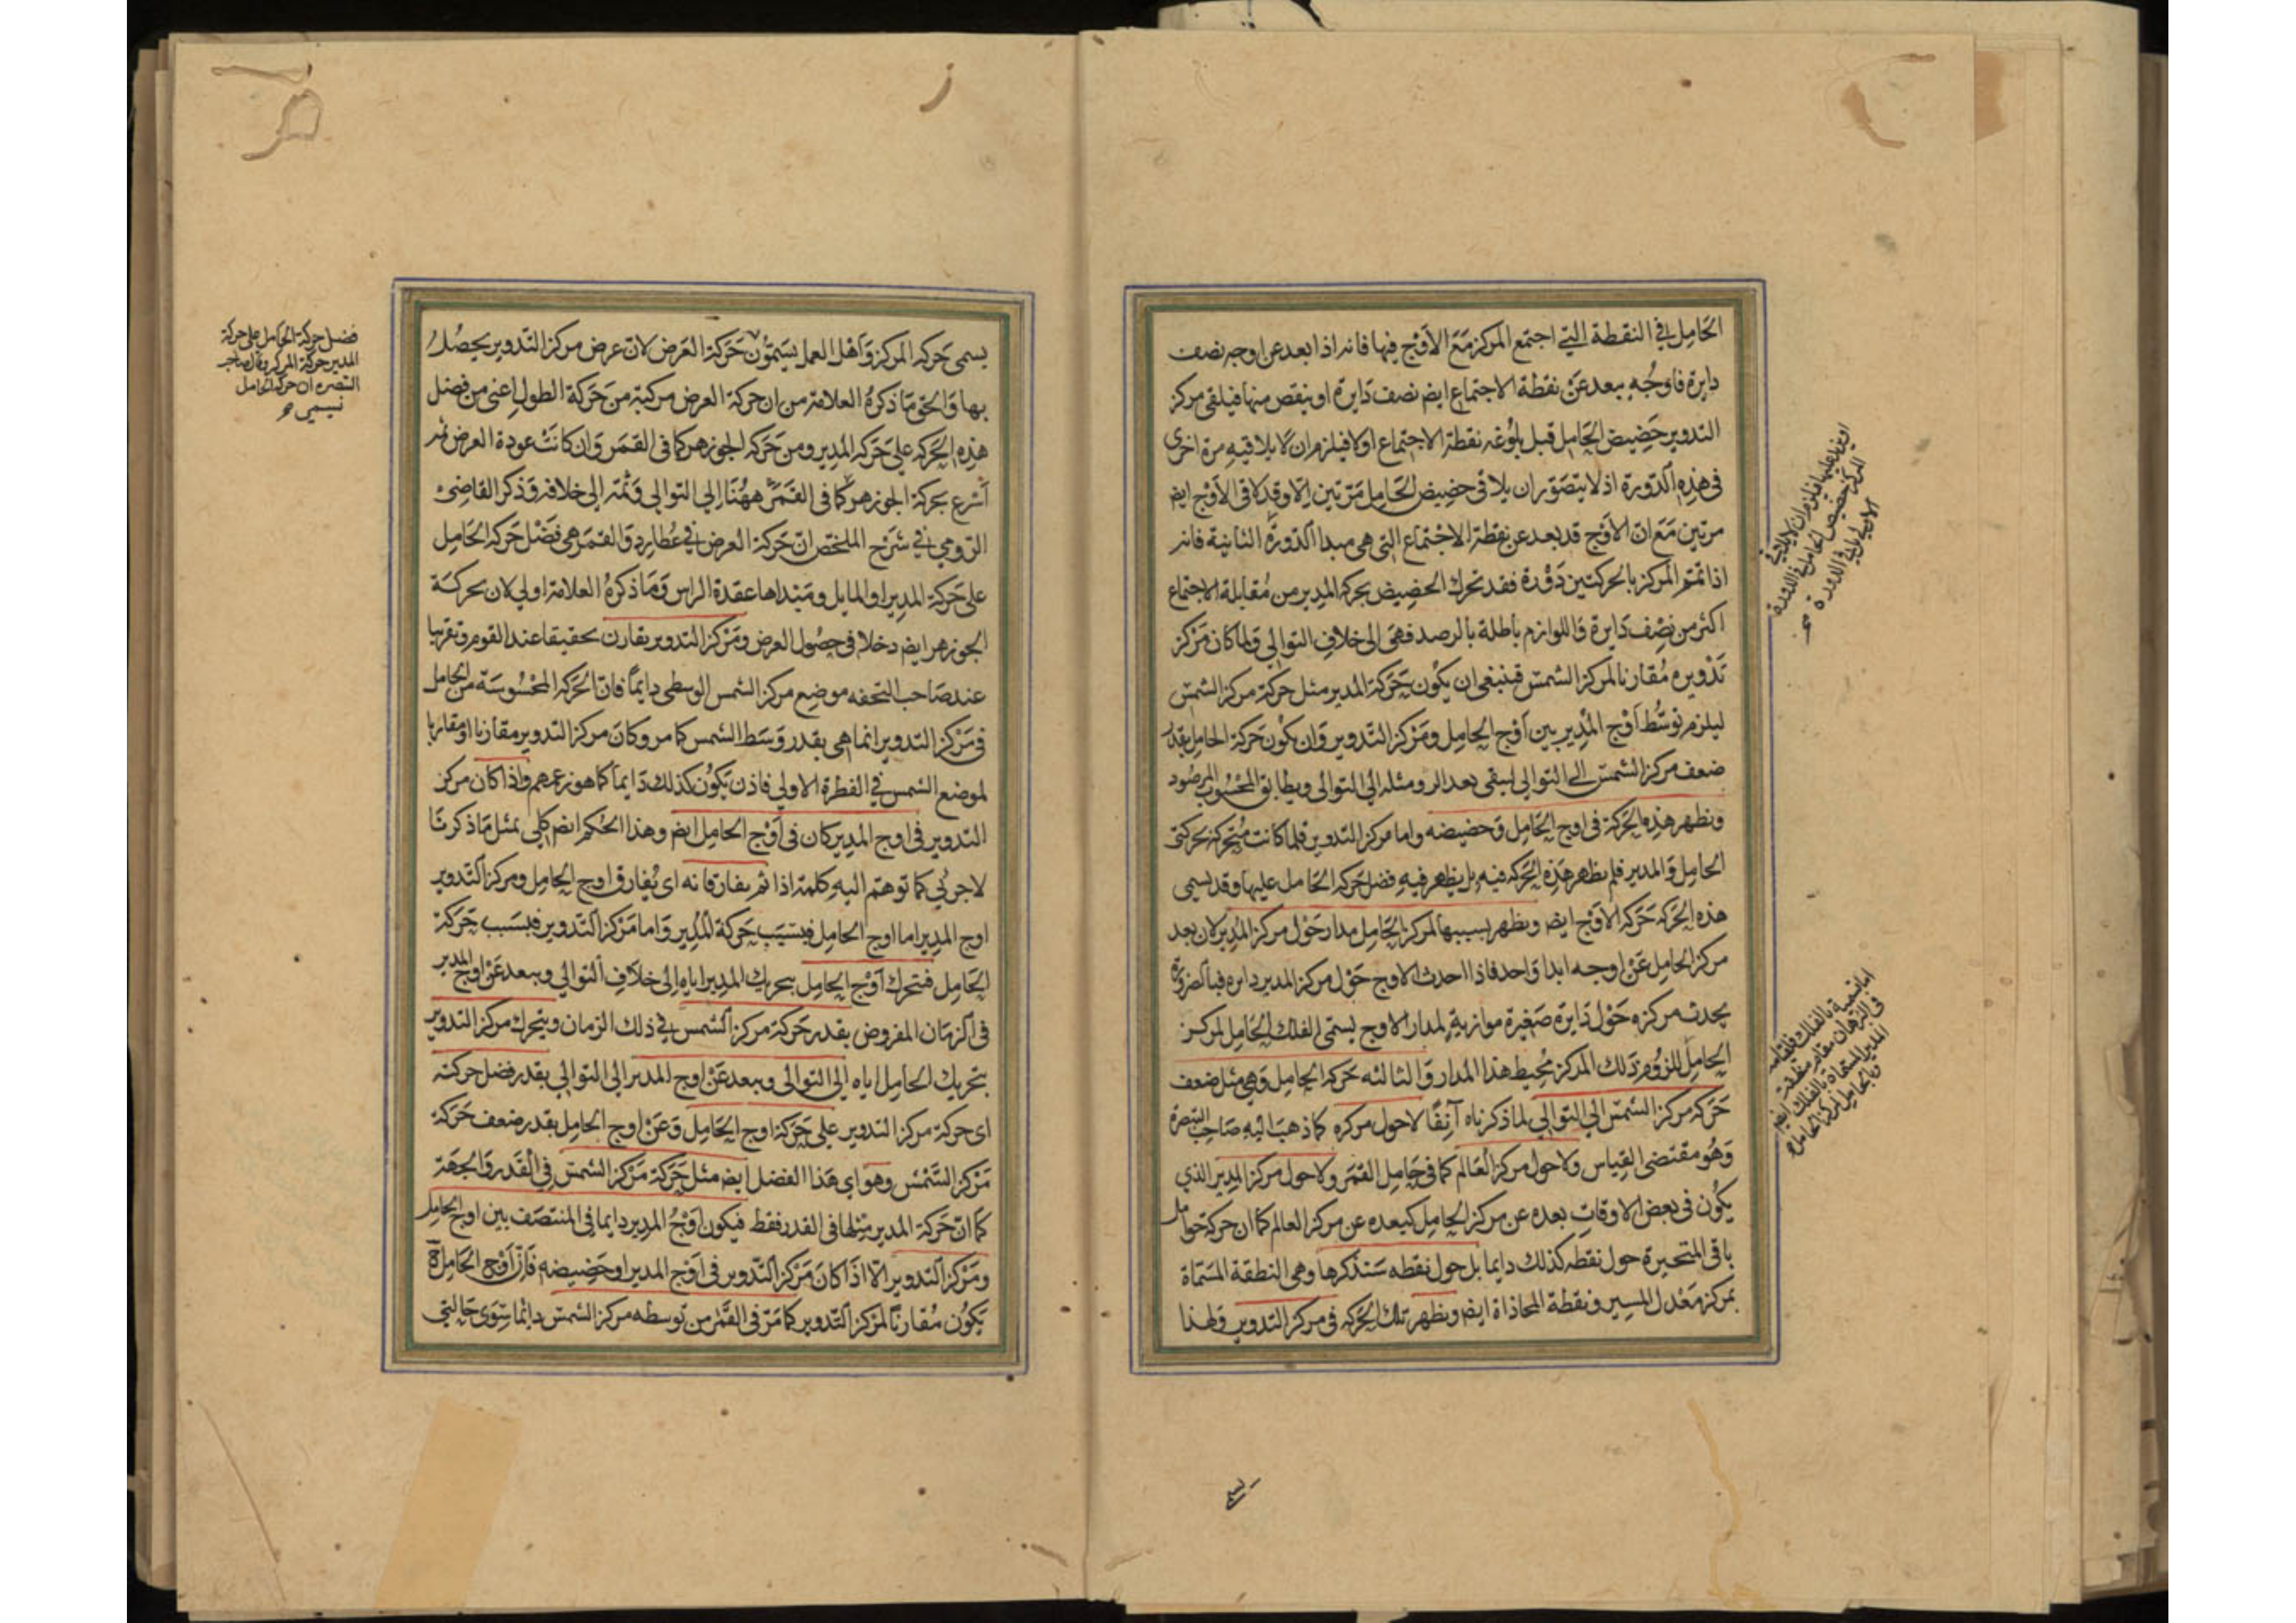 الحامل في النقطة التي اجتمع المركز مَعَ الأَوْج فيها فانه اذا بعد عن اوجه نصف
دايرة فاوجُه يبعد عَنْ نقطة الاجتماع ايضً نصف دَايرة او ينقص منها فيلقى مركز
التدوير حَضيض الحَامل قبل بلُوغه نقطة الاجتماع اولا فيلزم ان لا يلاقيهِ مرة اخرى
في هذِه الدّورة اذ لا يتصَوّر ان يلاقى حضِيض الحَامِل مَرّتين الا وقد لاقى الأوْج ايضً
مرتين مَعَ انّ الأوْج قد بعد عن نقطة الاجْتماع التى هي مبدا الدّورة الثانية فانه
اذا تمّم المركز بالحركتين دَوْرة فقد تحرك الحضِيض بحركة المدِير من مُقابلة الاجتماع
اكثر من نِصْف دَايرة وَاللوازم باطلة بالرصد فهىَ الى خلافِ التوالي وَلما كان مَرْكز
تَدْويره مُقارنا لمركز الشمسْ فينبغى ان يكُون حَرَكة المدير مثل حركة مركز الشمسْ
ليلزم توسُّط اوْج المُدِير بين اَوْج الحَامِل ومَرْكز التّدوير وَان يكُون حَركة الحامل بقدر
ضعف مركز الشمسْ الى التوالي ليبقى بعد الرد ومثله الى التوالى ويطابق المحْسُوب المرصُود
ونظهر هذِه الحَركة في اوج الحَامِل وَحضيضه واما مركز التدوير فلما كانت مُتحركة بحركتى
الحَامِل وَالمدير فلم يظهر هَذِه الحَرَكه فيه بل يظهر فيهِ فضل حَرَكة الحَامل عليها وقد يسمى
هذه الحَركه حَرَكة الأوْج ايضً ويظهر بسببها لمركز الحَامِل مدار حَوْل مركز المُدير لان بعد
مركز الحامِل عَنْ اوجه ابدا وَاحد فاذا احدث الاوج حَوْل مركز المدير دايره فبالضرورة
يحدث مركزه حَوْل دَايرة صَغيرة موازية لمدار الاوج يسمّى الفلك الحَامِل لمركز
الحَامِل للزوُم ذلك المركز مُحِيط هذا المدار وَالثالثه حَركة الحَامل وَهي مثل ضعف
حَرَكة مركز الشمسْ الي التوَالي لما ذكرناه آنِفًا لا حول مركزه كما ذهبَ اليهِ صَاحِب التبصرة
وَهُو مقتضى القِياس وَلا حول مركز العَالم كما في حَامِل القمَر ولا حول مركز المدِير الذي
يكُون في بعض الاوقاتِ بعده عن مركز الحَامِل كبعده عن مركز العالم كما ان حركة حوامل
باقى المتحيرة حول نقطه كذلك دايما بل حول نقطه سَنذكرها وهى النطقة المسَمّاة
بمركز مَعْدل المسِير ونقطة المحاذاة ايضً ويظهر تلك الحَرَكه فى مركز التدوير وَلهذا
يسمى
يسمى حَركه المركز وَاَهْل العمل يسَمّوُن حَرَكة العَرض لانّ عرض مركز التّدوير يحصُلُ
بها وَالحَق مَا ذكرهُ العلامة من ان حركة العرض مركبة منَ حَرَكة الطول اعنى من فضل
هَذِه الحَركه على حَرَكه المُدِير ومن حَرَكه الجوزهر كما فى القمَر وَان كانتْ عودة العرض ثمه
أَسْرع بحركة الجوزهر كما فى القمَر ههُنا الى التوالي وَثمّه إلى خلافه وَذكر القاضى
الرّومي في شرْح الملخص انّ حَركة العرض في عُطارِد وَالقمَر هى فَضْل حَركه الحَامِل
على حَركة المدِير او المايل ومَبْداها عقدة الراس وَمَا ذكرهُ العلامة اولي لان بحركَة
الجوزهر ايضً دخلا في حصُول العرض ومَرْكز التدوير يقارن تحقيقا عند القوم وتقريبا
عند صَاحب التحفه موضِع مركز الشمس الوسطى دايماً فانّ الحَرَكه المحْسُوسَة من الحَامل
في مَرْكز التدوير انما هي بقدر وَسَط الشمس كما مر وكانَ مركز التدوير مقارنا او مقاربا
لموضع الشمس في الفطرة الاولي فاذن يكُون كذلك دَايماً كما هو زعمهم واذا كان مركز
التدوير فى اوج المدِير كان فى اَوْج الحَامِل ايضً وهذا الحُكم ايضً كلى بمثل مَا ذكرنَا
لا جزئي كما توهّم اليهِ كلمة اذا ثم يفارقانه اى يُفارق اوج الحَامِل ومركز التدوير
اوج المدِير اما اوج الحَامِل فبسَبَب حَرَكة المُدِير وَاما مَرْكز التّدوير فبسَبب حَرَكة
الحَامِل فتحرك اَوْج الحَامِل بتحريك المدِير اياه الى خلافِ التوالي ويبعد عَنْ اوج المدير
فى الزمَان المفروض بقدر حَركة مركز الشمس في ذلك الزمان ويتحرك مركز التدوير
بتحريك الحَامِل اياه الى التوالى ويبعد عَنْ اوج المدير الى التوالي بقدر فضل حركته
اى حركة مركز التدوير على حَرَكة اوج الحَامِل وَعَنْ اوج الحامِل بقدر ضعف حَرَكة
مَرْكز الشمْس وهو اى هَذا الفضل ايضً مثل حَرَكة مَرْكز الشمسْ في القدر وَالجهَة
كما انّ حَرَكة المدير مثلها فى القدر فقط فيكون اَوْجُ المدِير دايما في المنتصَف بين اوج الحَامِل
ومَرْكز التّدوير الّا اذا كانَ مَرْكز التّدوير فى اَوْج المدير او حَضِيضه فَانّ اَوْج الحَامِل
يَكُون مُقارنًا لمرْكز التّدوير كما مَرّ في القمر من توسطه مركز الشمسْ دائما سِوَى حَالتى
فضل حركة الحامل على حركة
المدير حركة المركز وقال صاحب
التبصره ان حركة الحامل